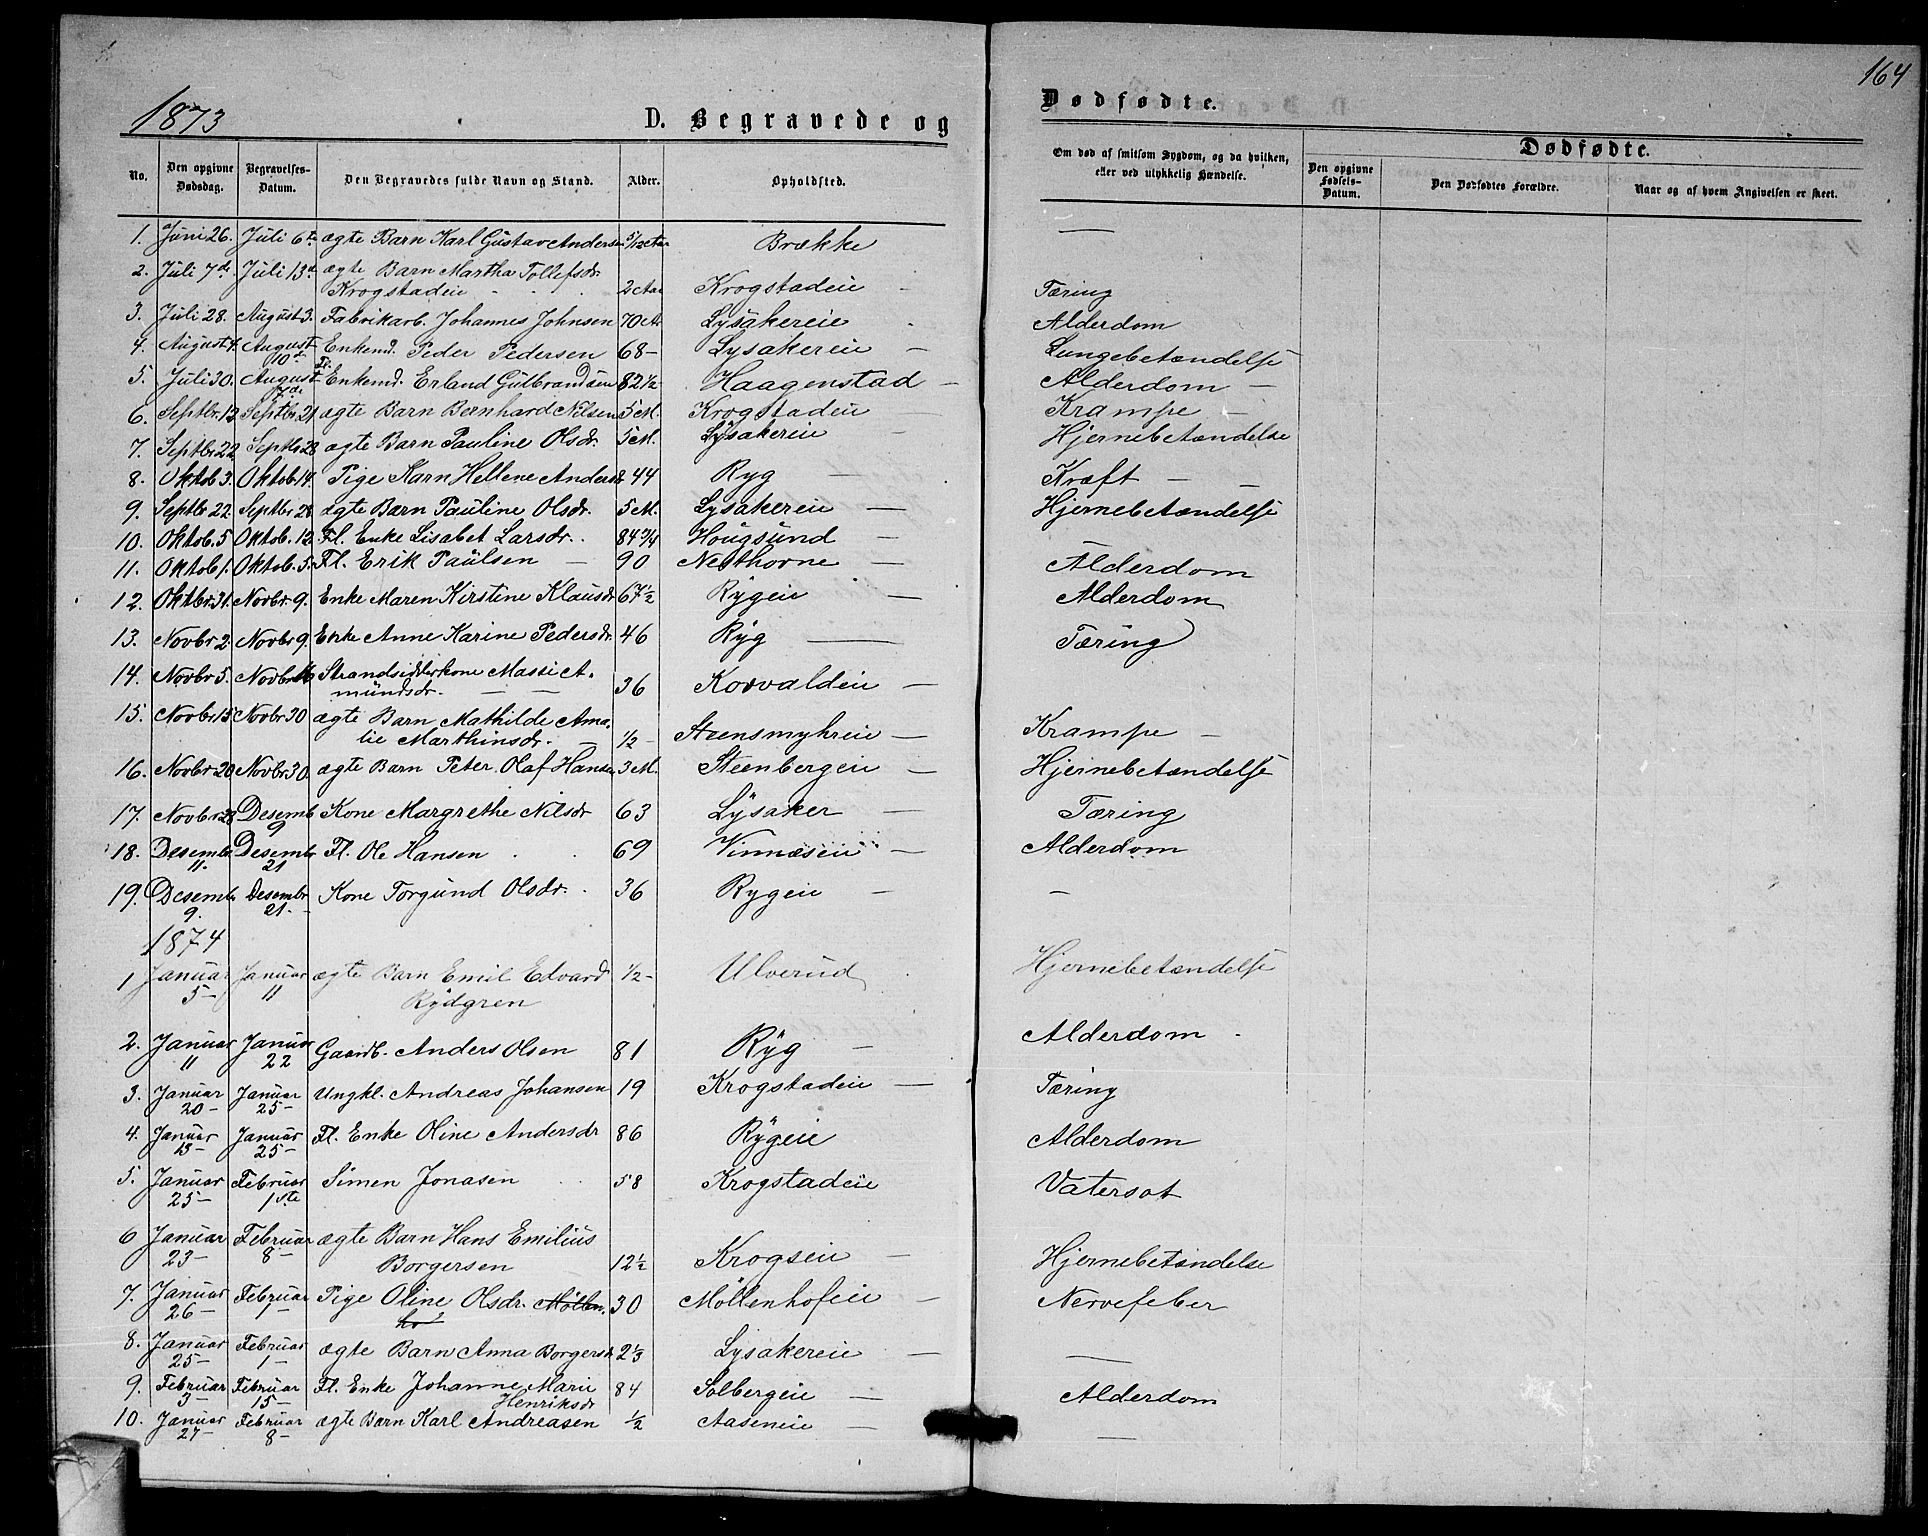 164
1873
D. Begravede og
Dødfødte.
No.
Den opgivne Dødsdag.
Begravelses-Datum.
Den Begravedes fulde Navn og Stand.
Alder.
Opholdsted.
Om død af smitsom Sygdom, og da hvilken, eller ved ulykkelig Hændelse.
Dødfødte.
Den opgivne Fødsels-Datum.
Den Dødfødtes Forældre.
Naar og af hvem Angivelsen er skeet.
1. Juni 26. Juli 6te ægte Barn Karl Gustav Andersen 5/12 Aar Brække —
2. Juli 7de Juli 13de ægte Barn Martha Tollefsdr.
Krogstadeie 2 Aar Krogstadeie Tæring
3. Juli 28. August 3. Fabrikarb. Johannes Johnsen 70 A. Lysakereie Alderdom
4. August 4. August 10de Enkemd. Peder Pedersen 68 — Lysakereie — Lungebetændelse
5. Juli 30. August Enkemd. Erland Gulbrandsen 82 1/2 Haagenstad — Alderdom —
6. Septbr. 12 Septbr. 21 ægte Barn Bernhard Nilsen 5 M. Krogstadeie Krampe —
7. Septbr. 22 Septbr. 28 ægte Barn Pauline Olsdr. 5 M. Lysakereie — Hjernebetændelse
8. Oktob. 3. Oktob. 14. Pige Karn Hellene Andersd. 44 Ryg — Kræft — —
9. Septbr. 22. Septbr. 28 ægte Barn Pauline Olsdr. 5 M. Lysakereie — Hjernebetændelse
10. Oktob. 5 Oktob. 12 Fl. Enke Lisabet Larsdr. 84 3/4 Hougsund —
11. Oktob. 1. Oktob. 5. Fl. Erik Paulsen — 90 Nesthorne — Alderdom
12. Oktbr. 31. Novbr. 9. Enke Maren Kirstine Klausdr 67 1/2 Rygeie — Alderdom
13. Novbr 2. Novbr 9. Enke Anne Karine Pedersdr. 46 Ryg — Tæring
14. Novbr 5. Novbr 16 Strandsidderkone Massi A-
mundsdr. — — 36 Korvaldeie —
15. Novbr 15 Novbr 30 ægte Barn Mathilde Ama-
lie Marthinsdr. — 1/2 — Steensmyhreie — Krampe —
16. Novbr 20 Novbr 30. ægte Barn Peter Olaf Hansen 3 M. Steenbergeie — Hjernebetændelse
17. Novbr 28 Desemb 9 Kone Margrethe Nilsdr 63 Lysaker — Tæring
18. Desembr 11. Desembr 21 Fl. Ole Hansen 69 Vinnæseie — Alderdom
19. Desembr 9. Desembr 21. — Kone Torgund Olsdr. 36 Rygeie — —
1874
1 Januar 5 — Januar 11 ægte Barn Emil Edvard 1/2 — Ulverud Hjernebetændelse
Rydgren
2. Januar 11 Januar 22 Gaardb. Anders Olsen 81 Ryg — Alderdom -
3. Januar 20 — Januar 25 — Ungkl. Andreas Johansen 19 Krogstadeie — Tæring
4. Januar 15 — Januar 25 — Fl. Enke Oline Andersdr 86 Rygeie Alderdom
5. Januar 25 — Februar 1ste Simen Jonasen 58 Krogstadeie Vatersot
6 Januar 23 — Februar 8 — ægte Barn Hans Emilius
Borgersen 12 1/2 Krogseie — Hjernebetændelse
7. Januar 26 — Februar 1 — Pige Oline Olsdr. Møllen-
ho 30 Møllenhofeie — Nervefeber
8. Januar 25 — Februar 1 — ægte Barn Anna Borgersd 2 1/3 Lysakereie — —
9. Februar 3 — Februar 15 — Fl. Enke Johanne Marie
Henriksdr 84 Solbergeie — Alderdom
10. Januar 27 — Februar 8 — ægte Barn Karl Andreasen 1/2 Aaseneie — —